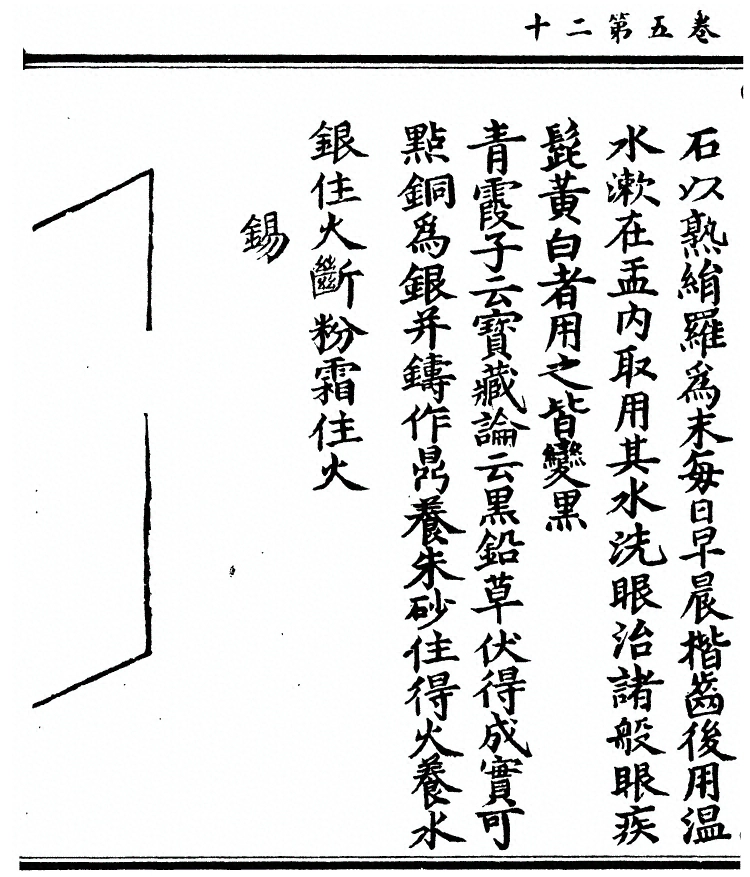 卷五第二十
石以熟絹羅爲末每日早晨楷齒後用溫
水漱在盂内取用其水洗眼治諸般眼疾
髭黄白者用之皆變黑
青霞子云寶藏論云黒鉛草伏得成實可
點銅爲銀并鑄作鼎養朱砂住得火養水
銀住火斷粉霜住火
錫